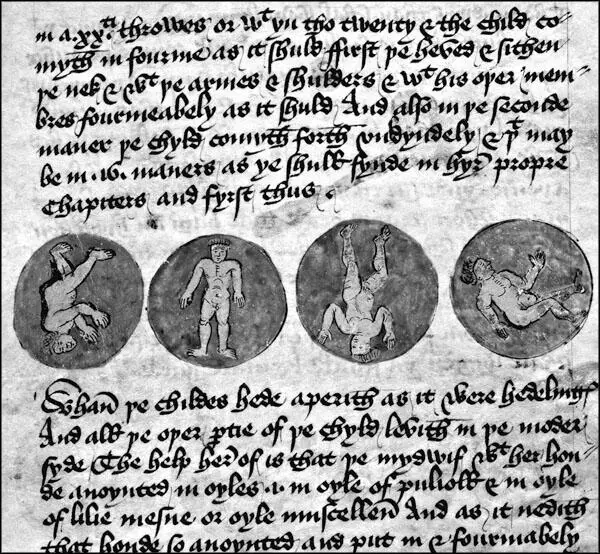 in a .xx.ti throwes or wt yn tho twenty & the child co-
myth in fourme as it shuld ffirst þe heved & sithen
þe nek & wt þe armes & shulders & wt his oþer mem-
bres fourmeabely as it shuld And also in þe seconde
maner þe chyld comyth forth vnkyndely & þt may
be in .xv. maners as ye shull fynde in hyr propre
Chapiters and fyrst thus
Whan þe childes hede aperith as it were hedeling
And all þe oþer ptie of þe chyld levith in þe moder
syde The help her of is that þe mydwif wt her hon-
de anoynted in oyles .i. in oyle of puliole & in oyle
of lilie or oyle muscellen And as it nedith
that honde so anoynted and put in & fourmabely